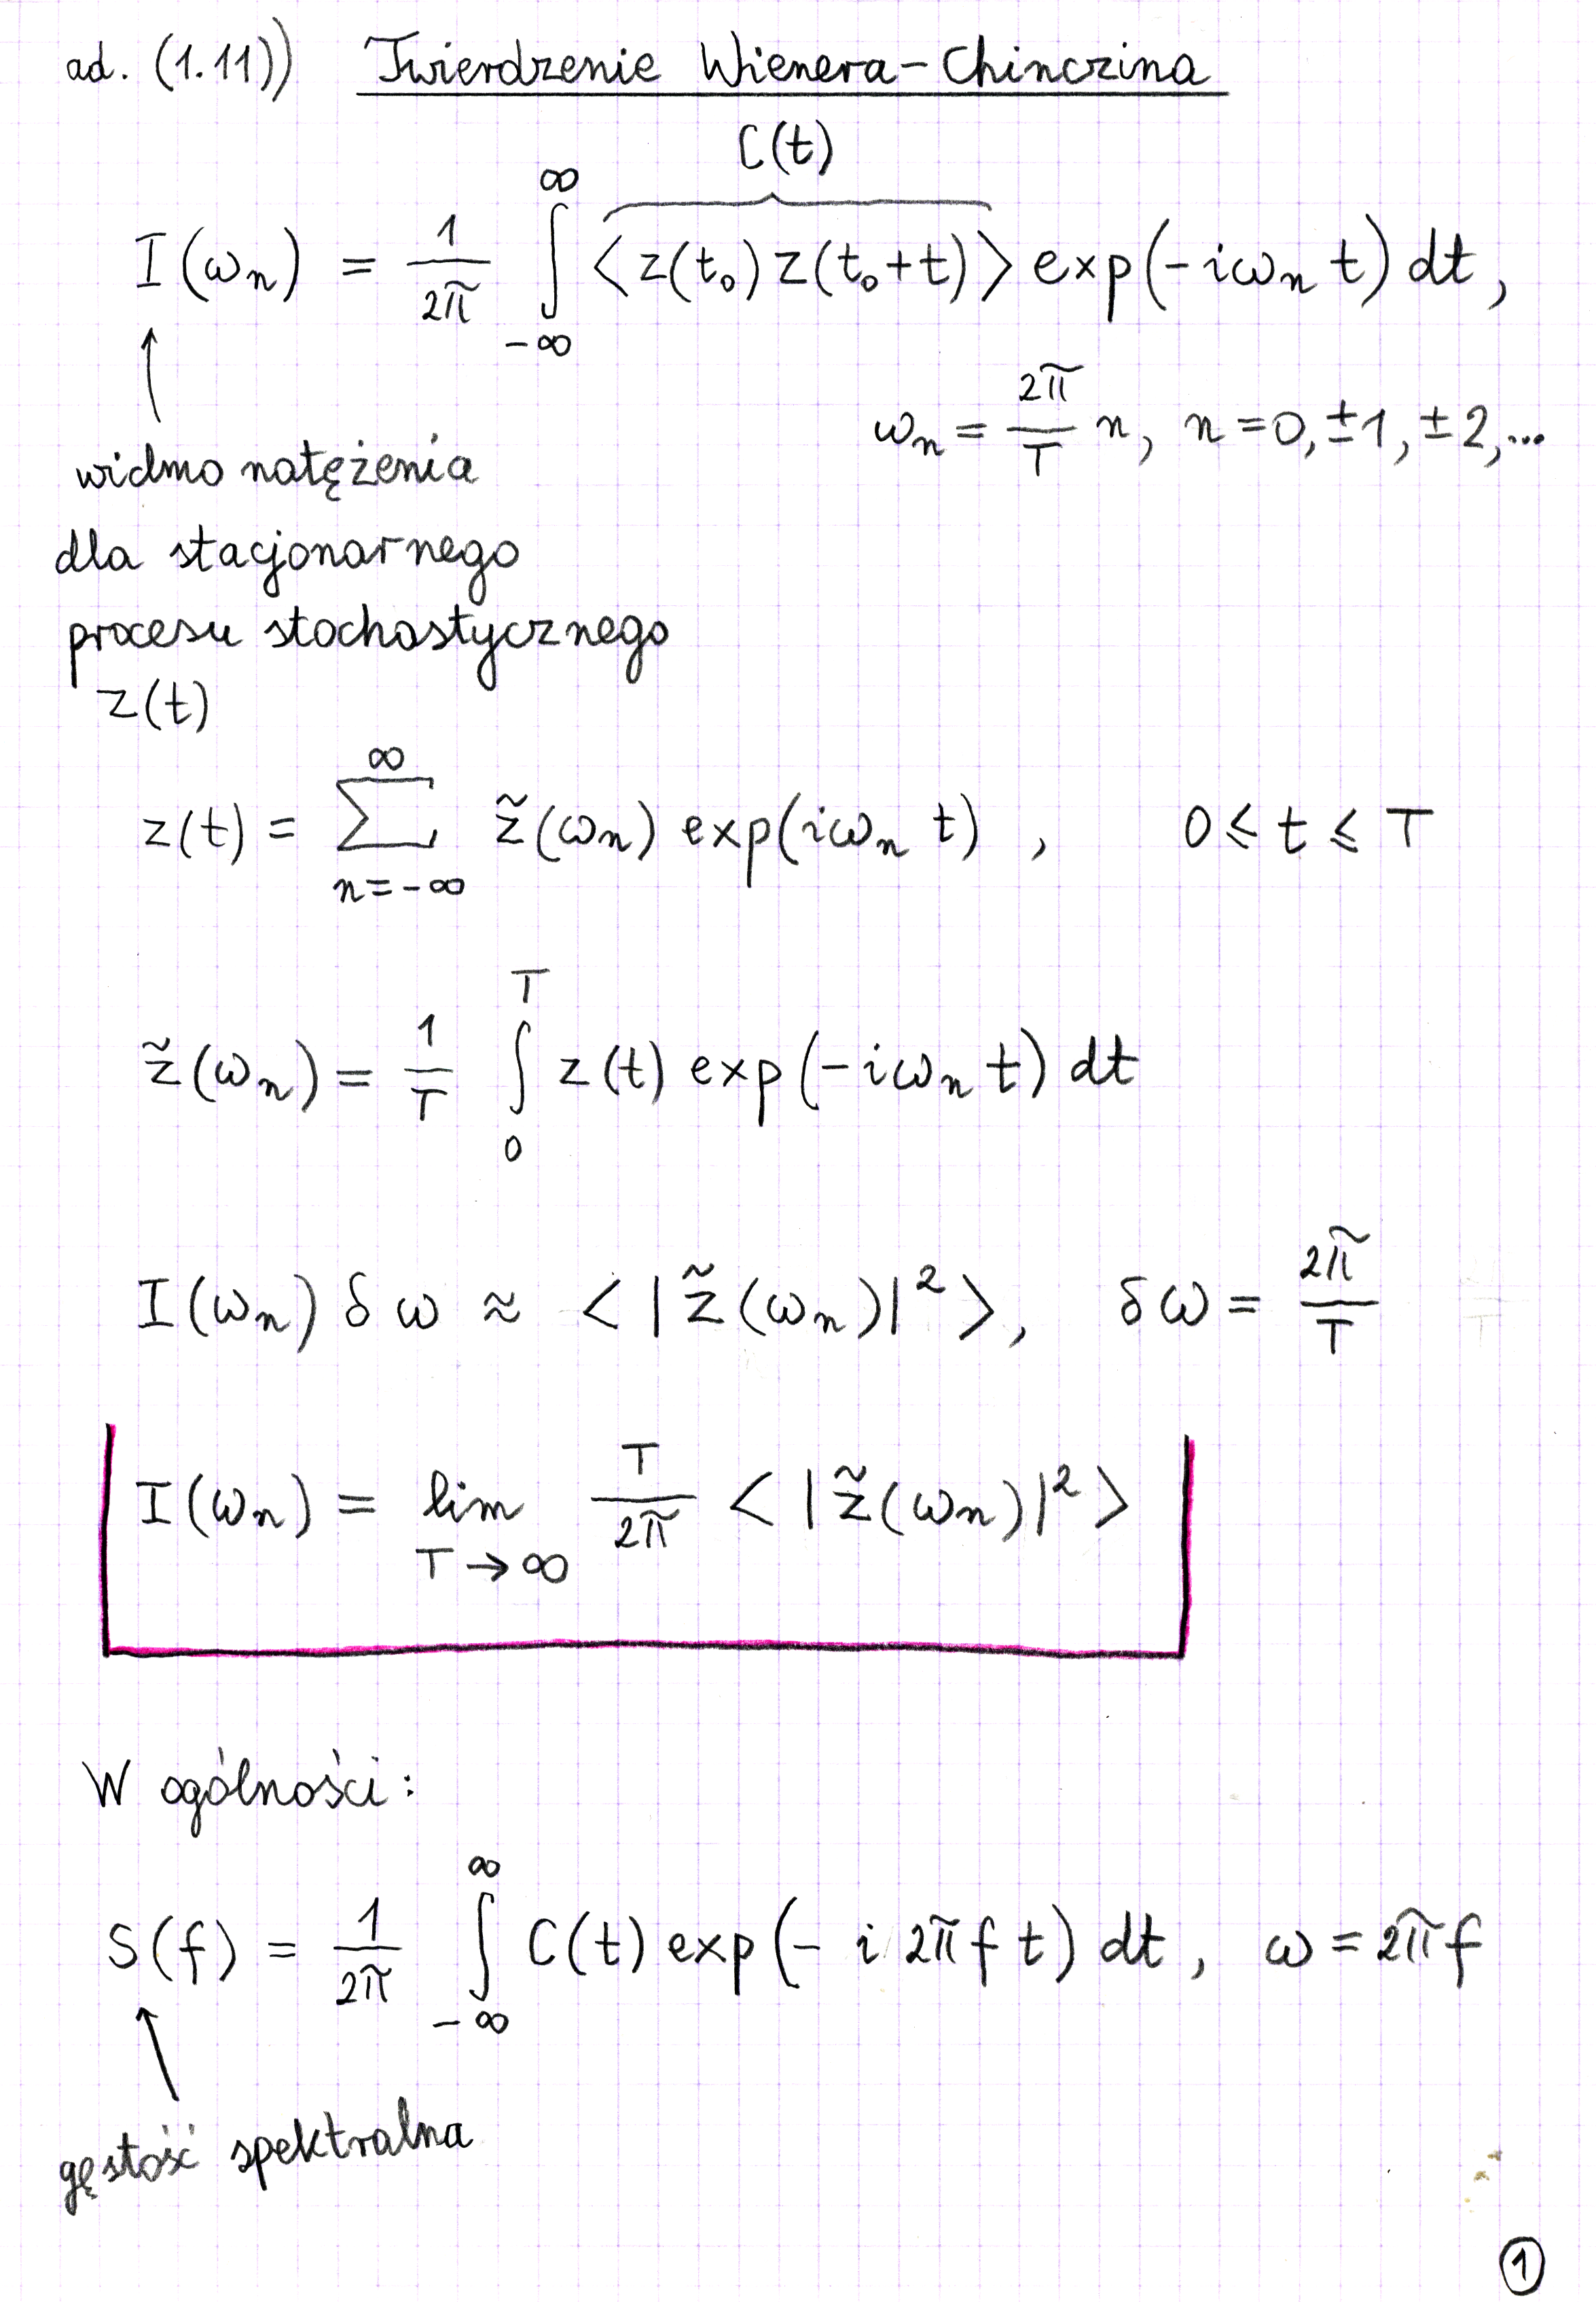 ad. (1.11)) Twierdzenie Wienera-Chinczina
C(t)
I(ωₙ) = 1/2π ∫_{-∞}^{∞} <z(t₀) z(t₀+t)> exp(-iωₙ t) dt,
ωₙ = 2π/T n, n=0, ±1, ±2,...
widmo natężenia
dla stacjonarnego
procesu stochastycznego
z(t)
z(t) = ∑_{n=-∞}^{∞} z̃(ωₙ) exp(iωₙ t) , 0 ≤ t ≤ T
z̃(ωₙ) = 1/T ∫_{0}^{T} z(t) exp(-iωₙ t) dt
I(ωₙ) δω ≈ <|z̃(ωₙ)|²>, δω = 2π/T
I(ωₙ) = lim_{T→∞} T/2π <|z̃(ωₙ)|²>
W ogólności:
S(f) = 1/2π ∫_{-∞}^{∞} C(t) exp(- i 2πf t) dt, ω = 2πf
gęstość spektralna
1